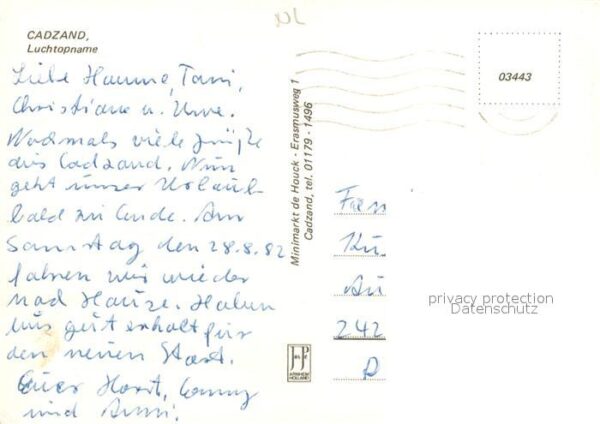 NL
CADZAND,
Luchtopname
Liebe Hanne, Toni,
Christiane u. Uwe.
Nochmals viele Grüße
aus Cadzand. Nun
geht unser Urlaub
bald zu Ende. Am
Samstag den 28.8.82
fahren wir wieder
nach Hause. Haben
uns gut erholt für
den neuen Start.
Euer Horst, Conny
und Anni.
Minimarkt de Houck - Erasmusweg 1
Cadzand, tel. 01179 - 1496
03443
Fam
Kü
Au
242
D
privacy protection
Datenschutz
ARNHEM
HOLLAND